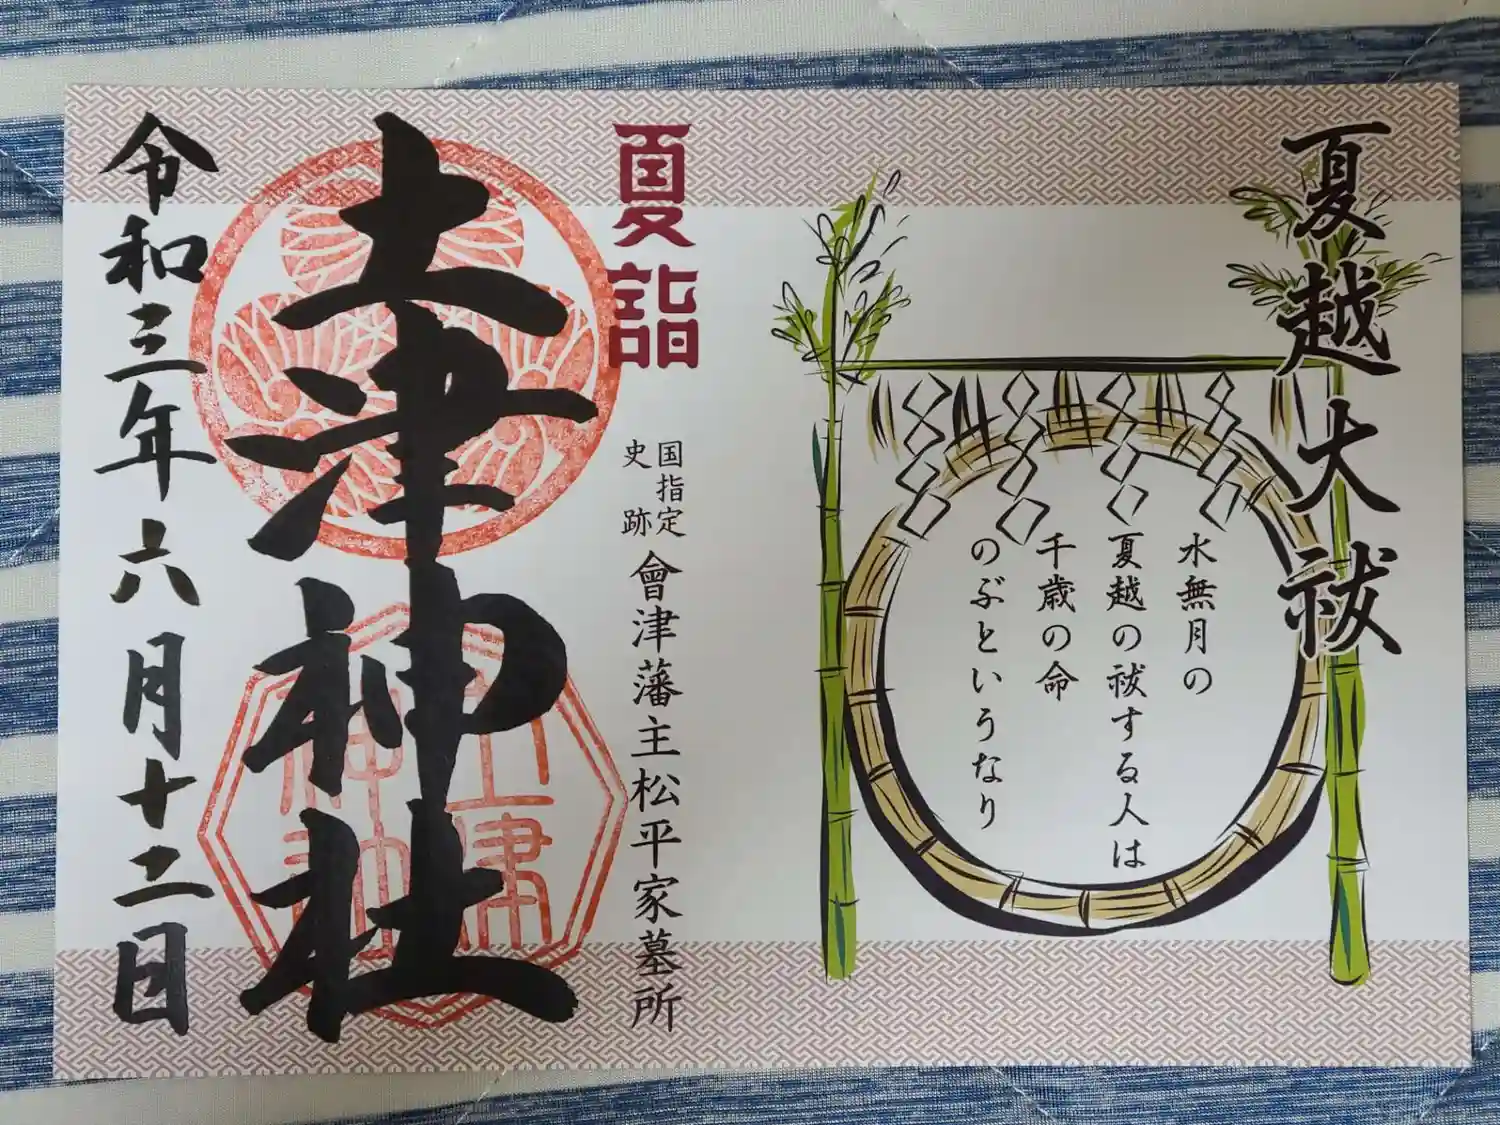 夏越大祓
水無月の
夏越の祓する人は
千歳の命
のぶというなり
夏詣
国指定
史跡
會津藩主松平家墓所
土津神社
令和三年六月十二日